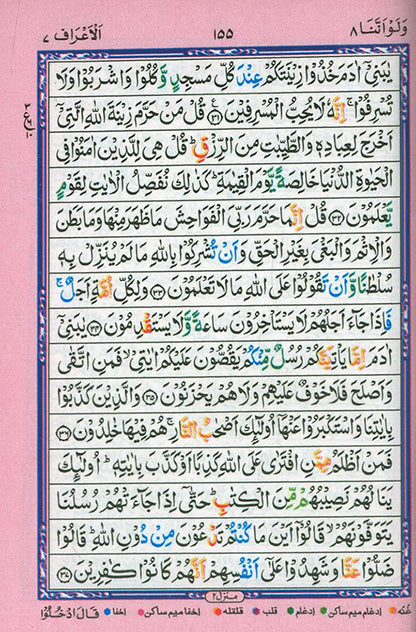 وَلَوْ اَنَّنَا ٨ ١٥٥ اَلْاَعْرَاف ٧
يٰبَنِيْۤ اٰدَمَ خُذُوْا زِيْنَتَكُمْ عِنْدَ كُلِّ مَسْجِدٍ وَّكُلُوْا وَاشْرَبُوْا وَلَا
تُسْرِفُوْا ۚ اِنَّهٗ لَا يُحِبُّ الْمُسْرِفِيْنَ ﴿٣١﴾ قُلْ مَنْ حَرَّمَ زِيْنَةَ اللّٰهِ الَّتِيْۤ
اَخْرَجَ لِعِبَادِهٖ وَالطَّيِّبٰتِ مِنَ الرِّزْقِ ؕ قُلْ هِيَ لِلَّذِيْنَ اٰمَنُوْا فِي
الْحَيٰوةِ الدُّنْيَا خَالِصَةً يَّوْمَ الْقِيٰمَةِ ؕ كَذٰلِكَ نُفَصِّلُ الْاٰيٰتِ لِقَوْمٍ
يَّعْلَمُوْنَ ﴿٣٢﴾ قُلْ اِنَّمَا حَرَّمَ رَبِّيَ الْفَوَاحِشَ مَا ظَهَرَ مِنْهَا وَمَا بَطَنَ
وَالْاِثْمَ وَالْبَغْيَ بِغَيْرِ الْحَقِّ وَاَنْ تُشْرِكُوْا بِاللّٰهِ مَا لَمْ يُنَزِّلْ بِهٖ
سُلْطٰنًا وَّاَنْ تَقُوْلُوْا عَلَى اللّٰهِ مَا لَا تَعْلَمُوْنَ ﴿٣٣﴾ وَلِكُلِّ اُمَّةٍ اَجَلٌ ۚ
فَاِذَا جَآءَ اَجَلُهُمْ لَا يَسْتَاْخِرُوْنَ سَاعَةً وَّلَا يَسْتَقْدِمُوْنَ ﴿٣٤﴾ يٰبَنِيْۤ
اٰدَمَ اِمَّا يَاْتِيَنَّكُمْ رُسُلٌ مِّنْكُمْ يَقُصُّوْنَ عَلَيْكُمْ اٰيٰتِيْ ۙ فَمَنِ اتَّقٰى
وَاَصْلَحَ فَلَا خَوْفٌ عَلَيْهِمْ وَلَا هُمْ يَحْزَنُوْنَ ﴿٣٥﴾ وَالَّذِيْنَ كَذَّبُوْا
بِاٰيٰتِنَا وَاسْتَكْبَرُوْا عَنْهَاۤ اُولٰٓئِكَ اَصْحٰبُ النَّارِ ۚ هُمْ فِيْهَا خٰلِدُوْنَ ﴿٣٦﴾
فَمَنْ اَظْلَمُ مِمَّنِ افْتَرٰى عَلَى اللّٰهِ كَذِبًا اَوْ كَذَّبَ بِاٰيٰتِهٖ ؕ اُولٰٓئِكَ
يَنَالُهُمْ نَصِيْبُهُمْ مِّنَ الْكِتٰبِ ؕ حَتّٰىۤ اِذَا جَآءَتْهُمْ رُسُلُنَا
يَتَوَفَّوْنَهُمْ ۙ قَالُوْۤا اَيْنَ مَا كُنْتُمْ تَدْعُوْنَ مِنْ دُوْنِ اللّٰهِ ؕ قَالُوْا
ضَلُّوْا عَنَّا وَشَهِدُوْا عَلٰۤى اَنْفُسِهِمْ اَنَّهُمْ كَانُوْا كٰفِرِيْنَ ﴿٣٧﴾
منزل ٢
غُنّه ادغام میم ساکن ادغام قلب قلقله اخفا میم ساکن اخفا قَالَ ادْخُلُوْا